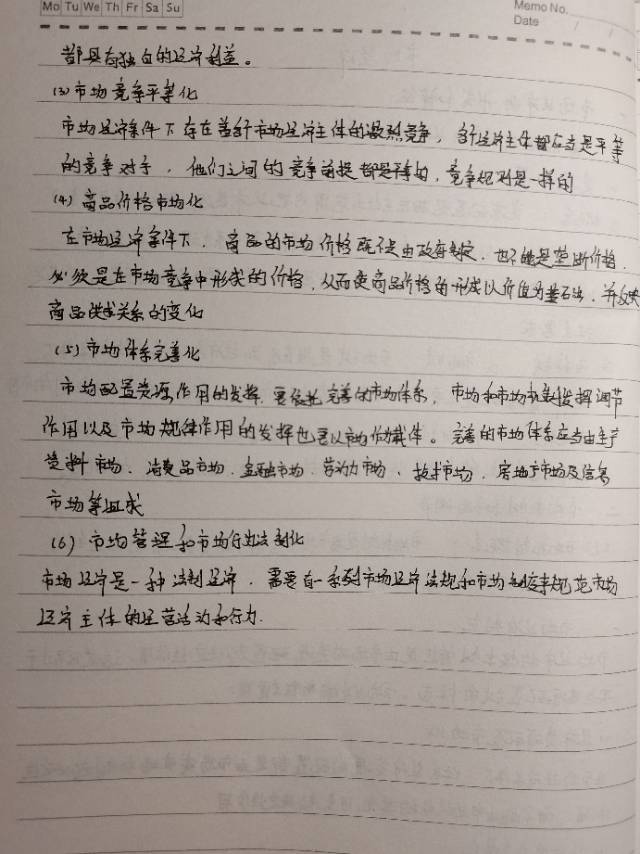 Mo Tu We Th Fr Sa Su
Memo No.
Date / /
都具有独自的经济利益。
(3) 市场竞争平等化
市场经济条件下存在着各个市场经济主体的激烈竞争，各个经济主体都应当是平等
的竞争对手，他们之间的竞争前提都是平等的，竞争规则是一样的
(4) 商品价格市场化
在市场经济条件下，商品的市场价格既不是由政府制定，也不能是垄断价格，
必须是在市场竞争中形成的价格，从而使商品价格的形成以价值为基础，并反映
商品供求关系的变化
(5) 市场体系完善化
市场配置资源作用的发挥，要依托完善的市场体系，市场和市场机制发挥调节
作用以及市场规律作用的发挥也要以市场作载体。完善的市场体系应当由生产
资料市场、消费品市场、金融市场、劳动力市场、技术市场、房地产市场及信息
市场等组成
(6) 市场管理和市场行为法制化
市场经济是一种法制经济，需要有一系列市场经济法规和市场制度来规范市场
经济主体的经营活动和行为.